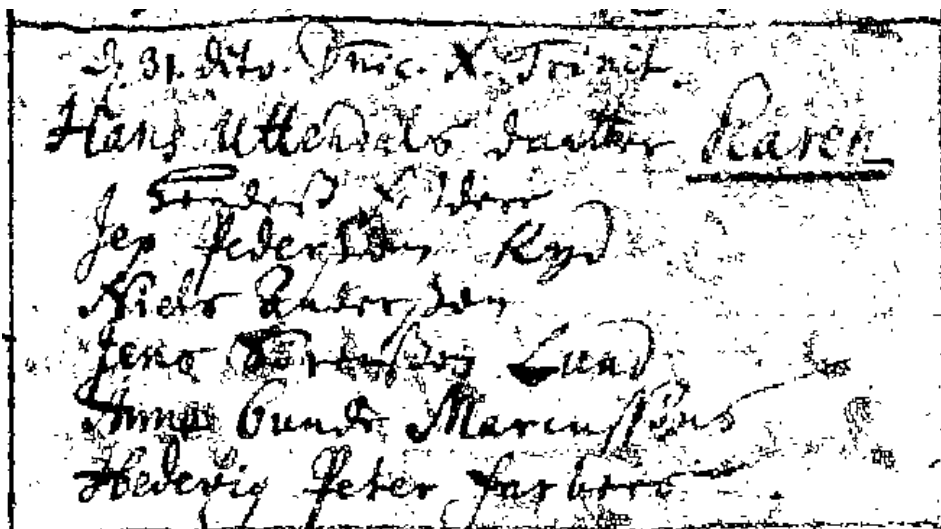 D. 31. dito. Dnic. X. Trinit.
Hans Uttendals daatter Karen

Jep Pedersøn Ryd
Niels Andersøn
Jens Lund
Anna Gundr Marcussøns
Hedevig Peter farbers